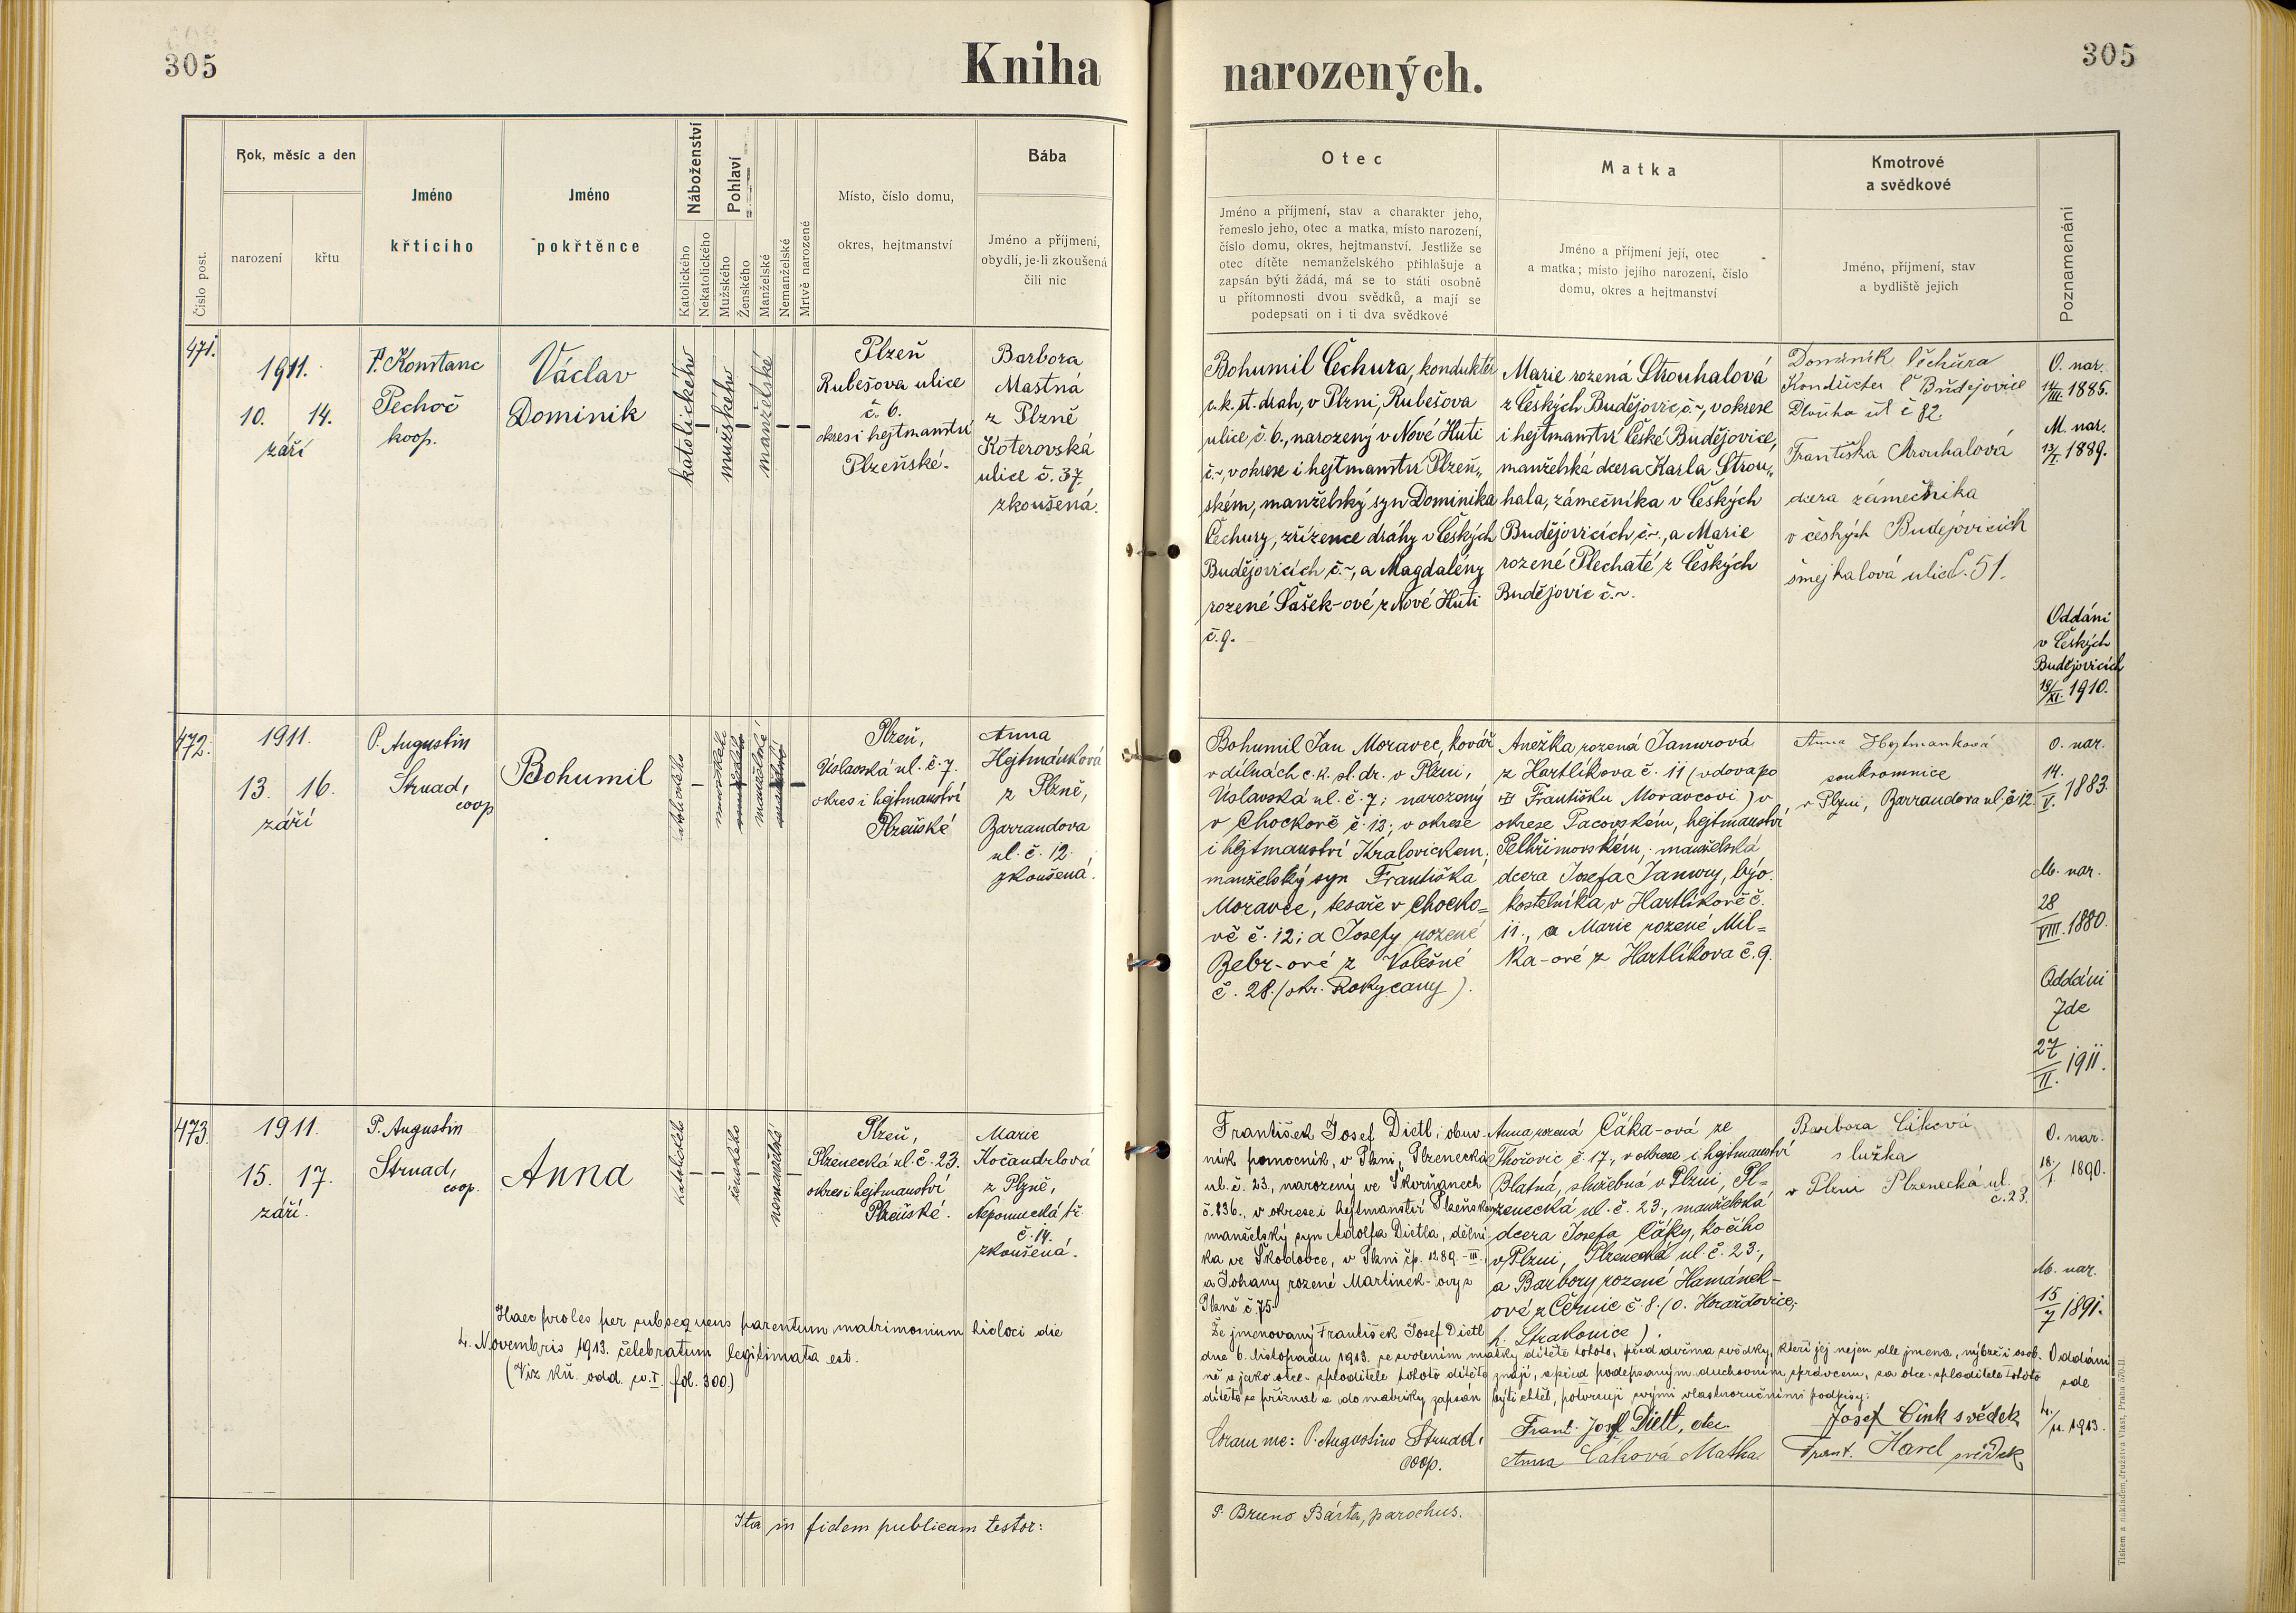 305
Kniha
narozených.
305
Číslo post.
Rok, měsíc a den
narození
křtu
Jméno
křtícího
Jméno
pokřtěnce
Náboženství
Katolického
Nekatolického
Pohlaví
Mužského
Ženského
Manželské
Nemanželské
Mrtvě narozené
Místo, číslo domu,
okres, hejtmanství
Bába
Jméno a příjmení,
obydlí, je-li zkoušená
čili nic
Otec
Jméno a příjmení, stav a charakter jeho,
řemeslo jeho, otec a matka, místo narození,
číslo domu, okres, hejtmanství. Jestliže se
otec dítěte nemanželského přihlašuje a
zapsán býti žádá, má se to státi osobně
u přítomnosti dvou svědků, a mají se
podepsati on i ti dva svědkové
Matka
Jméno a příjmení její, otec
a matka; místo jejího narození, číslo
domu, okres a hejtmanství
Kmotrové
a svědkové
Jméno, příjmení, stav
a bydliště jejich
Poznamenání
471.
1911.
10. 14.
září
P. Konstanc
Pechoč
koop.
Václav
Dominik
katolického
mužského
manželské
Plzeň
Rubešova ulice
č. 6.
okres i hejtmanství
Plzeňské.
Barbora
Mastná
z Plzně
Koterovská
ulice č. 37.
zkoušená.
Bohumil Čechura, konduktér
c. k. st. drah, v Plzni, Rubešova
ulice, č. 6., narozený v Nové Huti
č. ~, v okrese i hejtmanství Plzeň„
ském, manželský syn Dominika
Čechury, zřízence dráhy v Českých
Budějovicích č. ~, a Magdalény
rozené Sašek-ové z Nové Huti
č. 9.
Marie rozená Strouhalová
z Českých Budějovic, č. ~, v okrese
i hejtmanství České Budějovice,
manželská dcera Karla Strou„
hala, zámečníka v Českých
Budějovicích, č. ~, a Marie
rozené Plechaté z Českých
Budějovic č. ~.
Dominik Čechura
Kondukter Č Budejovice
Dlouha ul č 82.
Františka Strouhalová
dcera zámečnika
v českých Budejovicich
šmejkalová ulice č. 51.
O. nar.
14/III. 1885.
M. nar.
13/I. 1889.
Oddáni
v Českých
Budějovicích
19/XI. 1910.
472.
1911.
13. 16.
září
P. Augustin
Strnad,
coop
Bohumil
katolického
mužského
manželské
Plzeň,
Úslavská ul. č. 7.
okres i hejtmanství
Plzeňské
Anna
Hejtmánková
z Plzně,
Barrandova
ul. č. 12.
zkoušená.
Bohumil Jan Moravec, kovář
v dílnách c. k. st. dr. v Plzni,
Úslavská ul. č. 7; narozený
v Chockově č. 12; v okrese
i hejtmanství Kralovickém;
manželský syn Františka
Moravce, tesaře v Chocko=
vě č. 12; a Josefy rozené
Bebr-ové z Volešné
č. 28. (okr. Rokycany).
Anežka rozená Janurová
z Hartlíkova č. 11 (vdova po
Františku Moravcovi) v
okrese Pacovském, hejtmanství
Pelhřimovském; manželská
dcera Josefa Janury, býv.
kostelníka v Hartlíkově č.
11., a Marie rozené Mil=
ka-ové z Hartlíkova č. 9.
Anna Hejtmanková
soukromnice
v Plzni, Barrandova ul č 12.
O. nar.
14./V. 1883.
M. nar.
28/VIII. 1880.
Oddáni
zde
27/II. 1911.
473.
1911.
15. 17.
září.
P. Augustin
Strnad,
coop.
Anna
katolického
ženského
nemanželské
Plzeň,
Plzenecká ul. č. 23.
okres i hejtmanství
Plzeňské.
Marie
Kočandrlová
z Plzně,
Nepomucká tř.
č. 14.
zkoušená.
František Josef Dietl, obuv-
nísk pomocník, v Plzni, Plzenecká
ul. č. 23, narozený ve Skvrňanech
č. 236., v okrese i hejtmanství Plzeňském,
manželský syn Adolfa Dietla, dělní-
ka ve Škodovce, v Plzni čp. 1289.-III.
a Johany rozené Martinek-ovy z
Plzně č. 75.
Anna rozená Čáka-ová ze
Thořovic č. 17., v okrese i hejtmanství
Blatná, služebná v Plzni, Pl-
zenecká ul. č. 23., manželská
dcera Josefa Čáky, kočího
v Plzni, Plzenecká ul č. 23.,
a Barbory rozené Hamánek-
ové z Černic č. 8. (o. Horažďovice,
h. Strakonice).
Barbora Cáková
služka
v Plzni Plzenecká ul.
č. 23.
O. nar.
18./I. 1890.
M. nar.
15/7 1891.
Oddáni
zde
4./11. 1913.
Haec proles per subsequens parentum matrimonium hicloci die
4. Novembris 1913. celebratum legitimata est.
(Viz kn. odd. sv. I. fol. 300.)
Že jmenovaný František Josef Dietl
dne 6. listopadu 1913. se svolením matky dítěte tohoto, před dvěma svědky, kteří jej nejen dle jmena, nýbrž i osob-
ně a jako otce-sploditele tohoto dítěte znají, a před podepsaným duchovním správcem, za otce-sploditele tohoto
dítěte se přiznal a do matriky zapsán býti chtěl, potvrzují svými vlastnoručními podpisy:
Coram me: P. Augustino Strnad,
coop.
Frant. Josef Dietl, otec.
Anna Cáková Matka
Josef Cink svědek
Frant. Havel svědek
Ita in fidem publicam testor:
P. Bruno Bárta, parochus.
Tiskem a nákladem družstva Vlast, Praha 570-II.